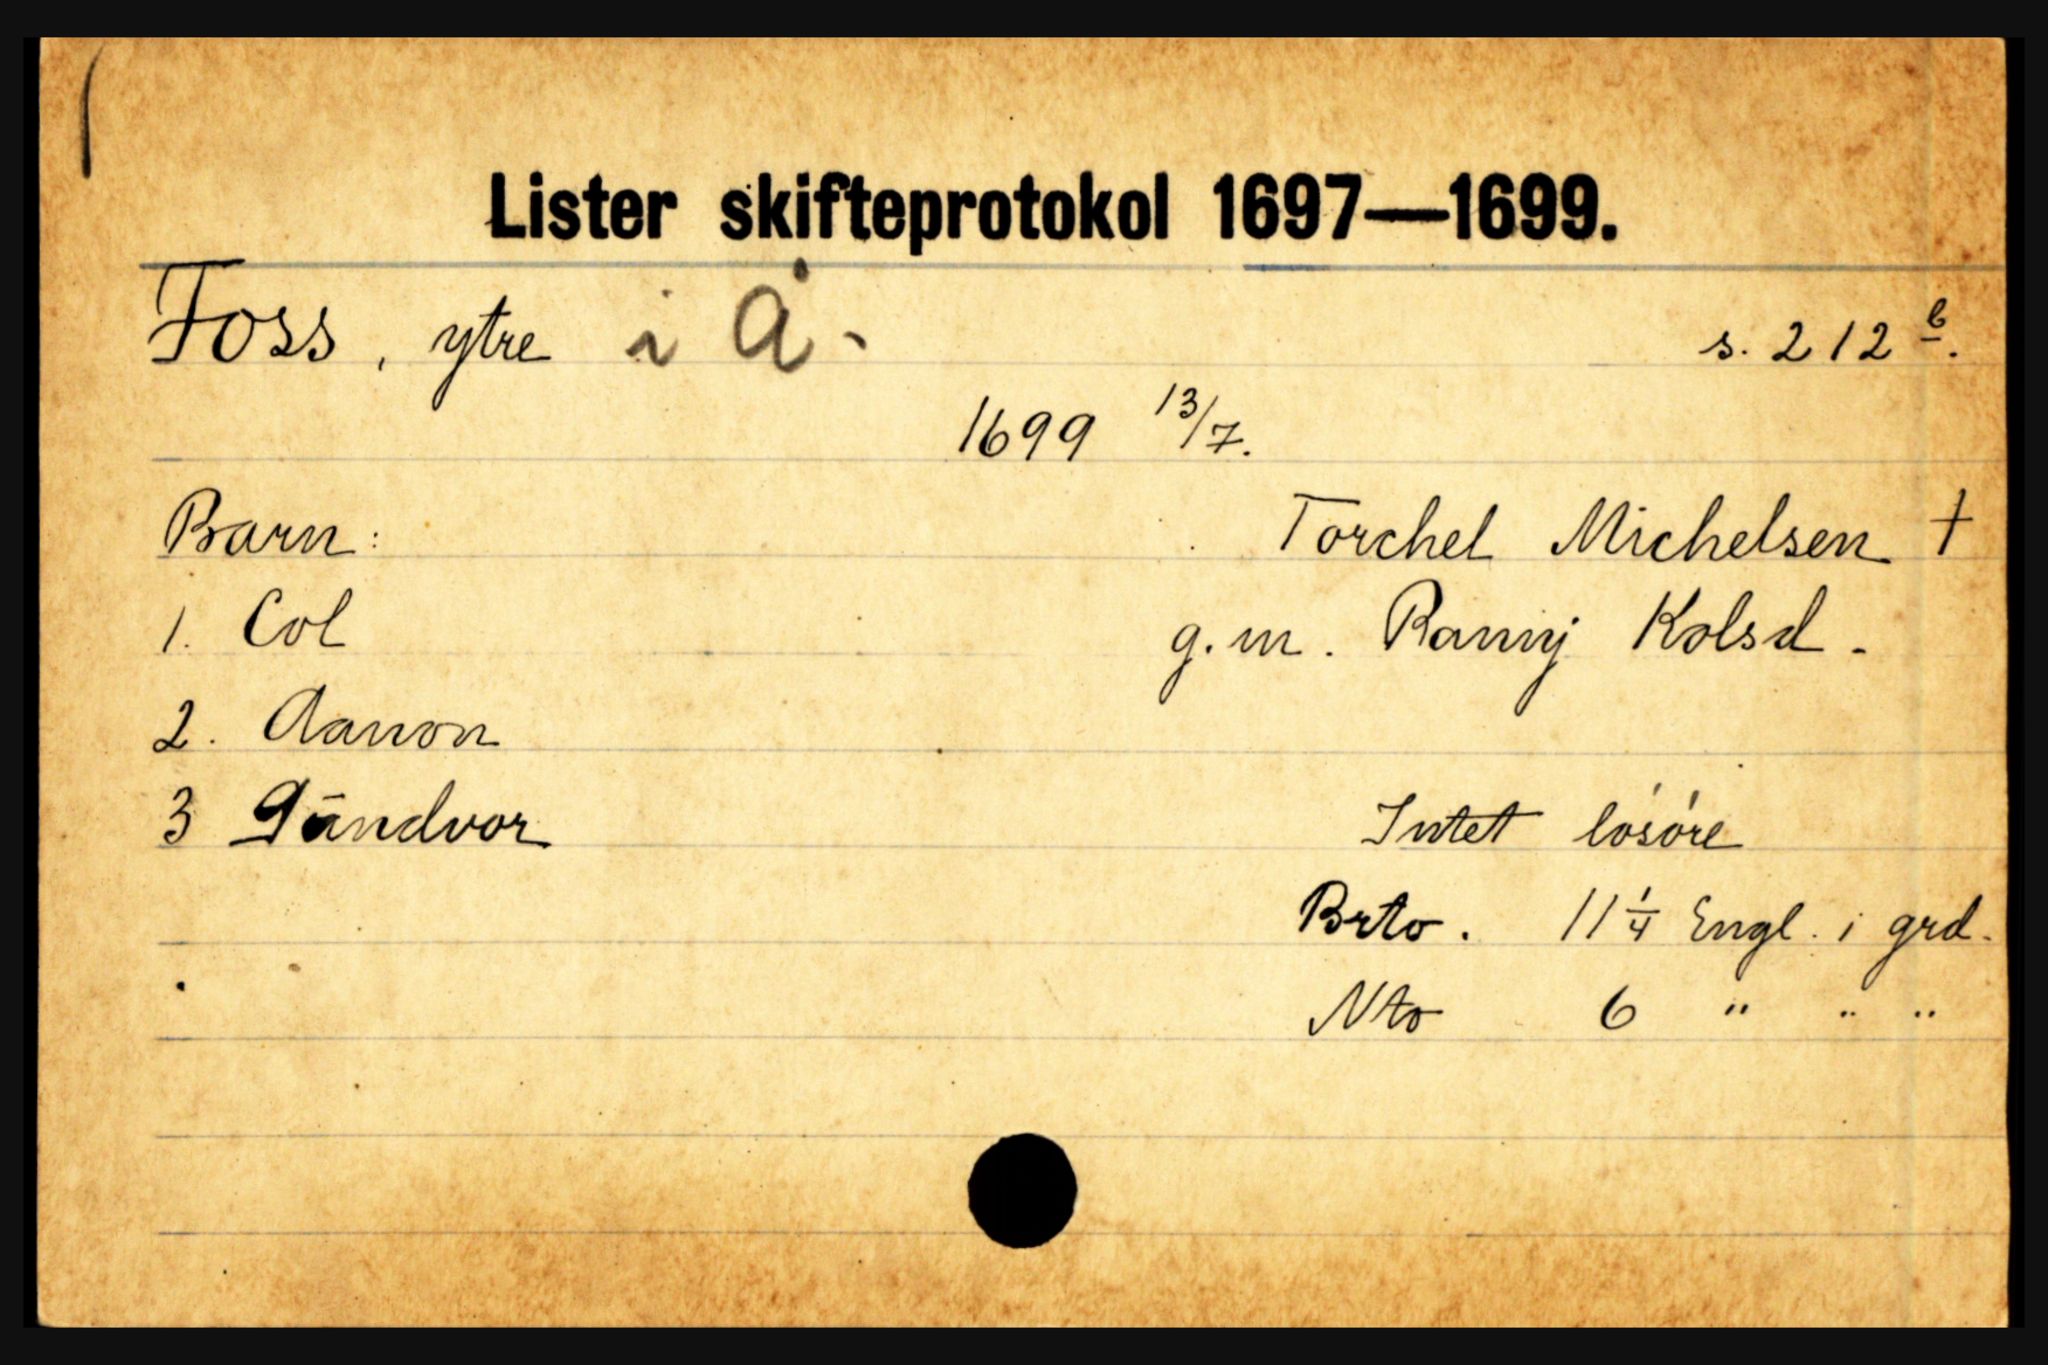 Lister skifteprotokol 1697—1699.
Foss, ytre i Å. s. 212 b.
1699 13/7.
Barn: Torchel Michelsen †
1. Col g.m. Ranvj Kolsd.
2. Aanon
3 Gundvor Intet lösöre
Brto. 11 1/4 Engl. i grd.
Nto 6 " " "